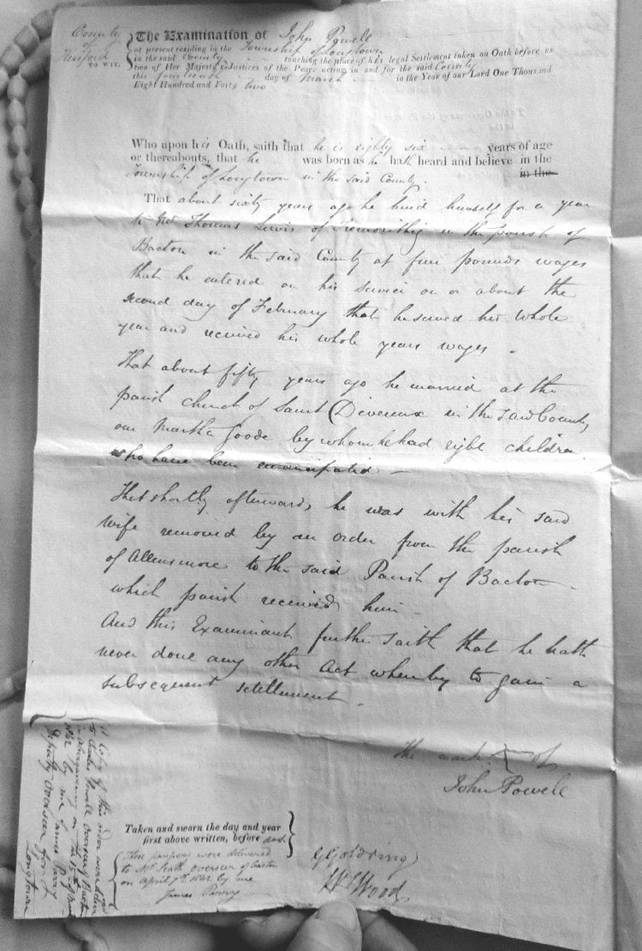 County
of
Hereford
TO WIT.
The Examination of John Powell
at present residing in the Township of Longtown
in the said County touching the place of his legal Settlement taken on Oath before us
two of Her Majesty's Justices of the Peace acting in and for the said County
this fourteenth day of March in the Year of our Lord One Thousand
Eight Hundred and Forty two
Who upon his Oath, saith that he is eighty six years of age
or thereabouts, that he was born as he hath heard and believe in the
Township of Longtown in the said County. in the
That about sixty years ago he hired himself for a year
to Mr Thomas Lewis of in the parish of
Bacton in the said County at five pounds wages
that he entered on his service on or about the
second day of February that he served his whole
year and received his whole years wages -
That about fifty years ago he married at the
parish church of Saint Devereux in the said County,
one Martha Goode by whom he had eight children
who have been emancipated -
That shortly afterwards he was with his said
wife removed by an order from the parish
of Allensmore to the said Parish of Bacton -
which parish received him -
And this Examinant further saith that he hath
never done any other Act whereby to gain a
subsequent settlement -
The mark of
John Powell
Taken and sworn the day and year
first above written, before us.
G Golding
W Wood
This were delivered
to Mr overseer of Bacton
on April 9th 1842 by me
James Parry
of this order were
to Charles Powell Overseer Bacton
on the
1842 by me James Parry
Deputy Overseer for
Longtown